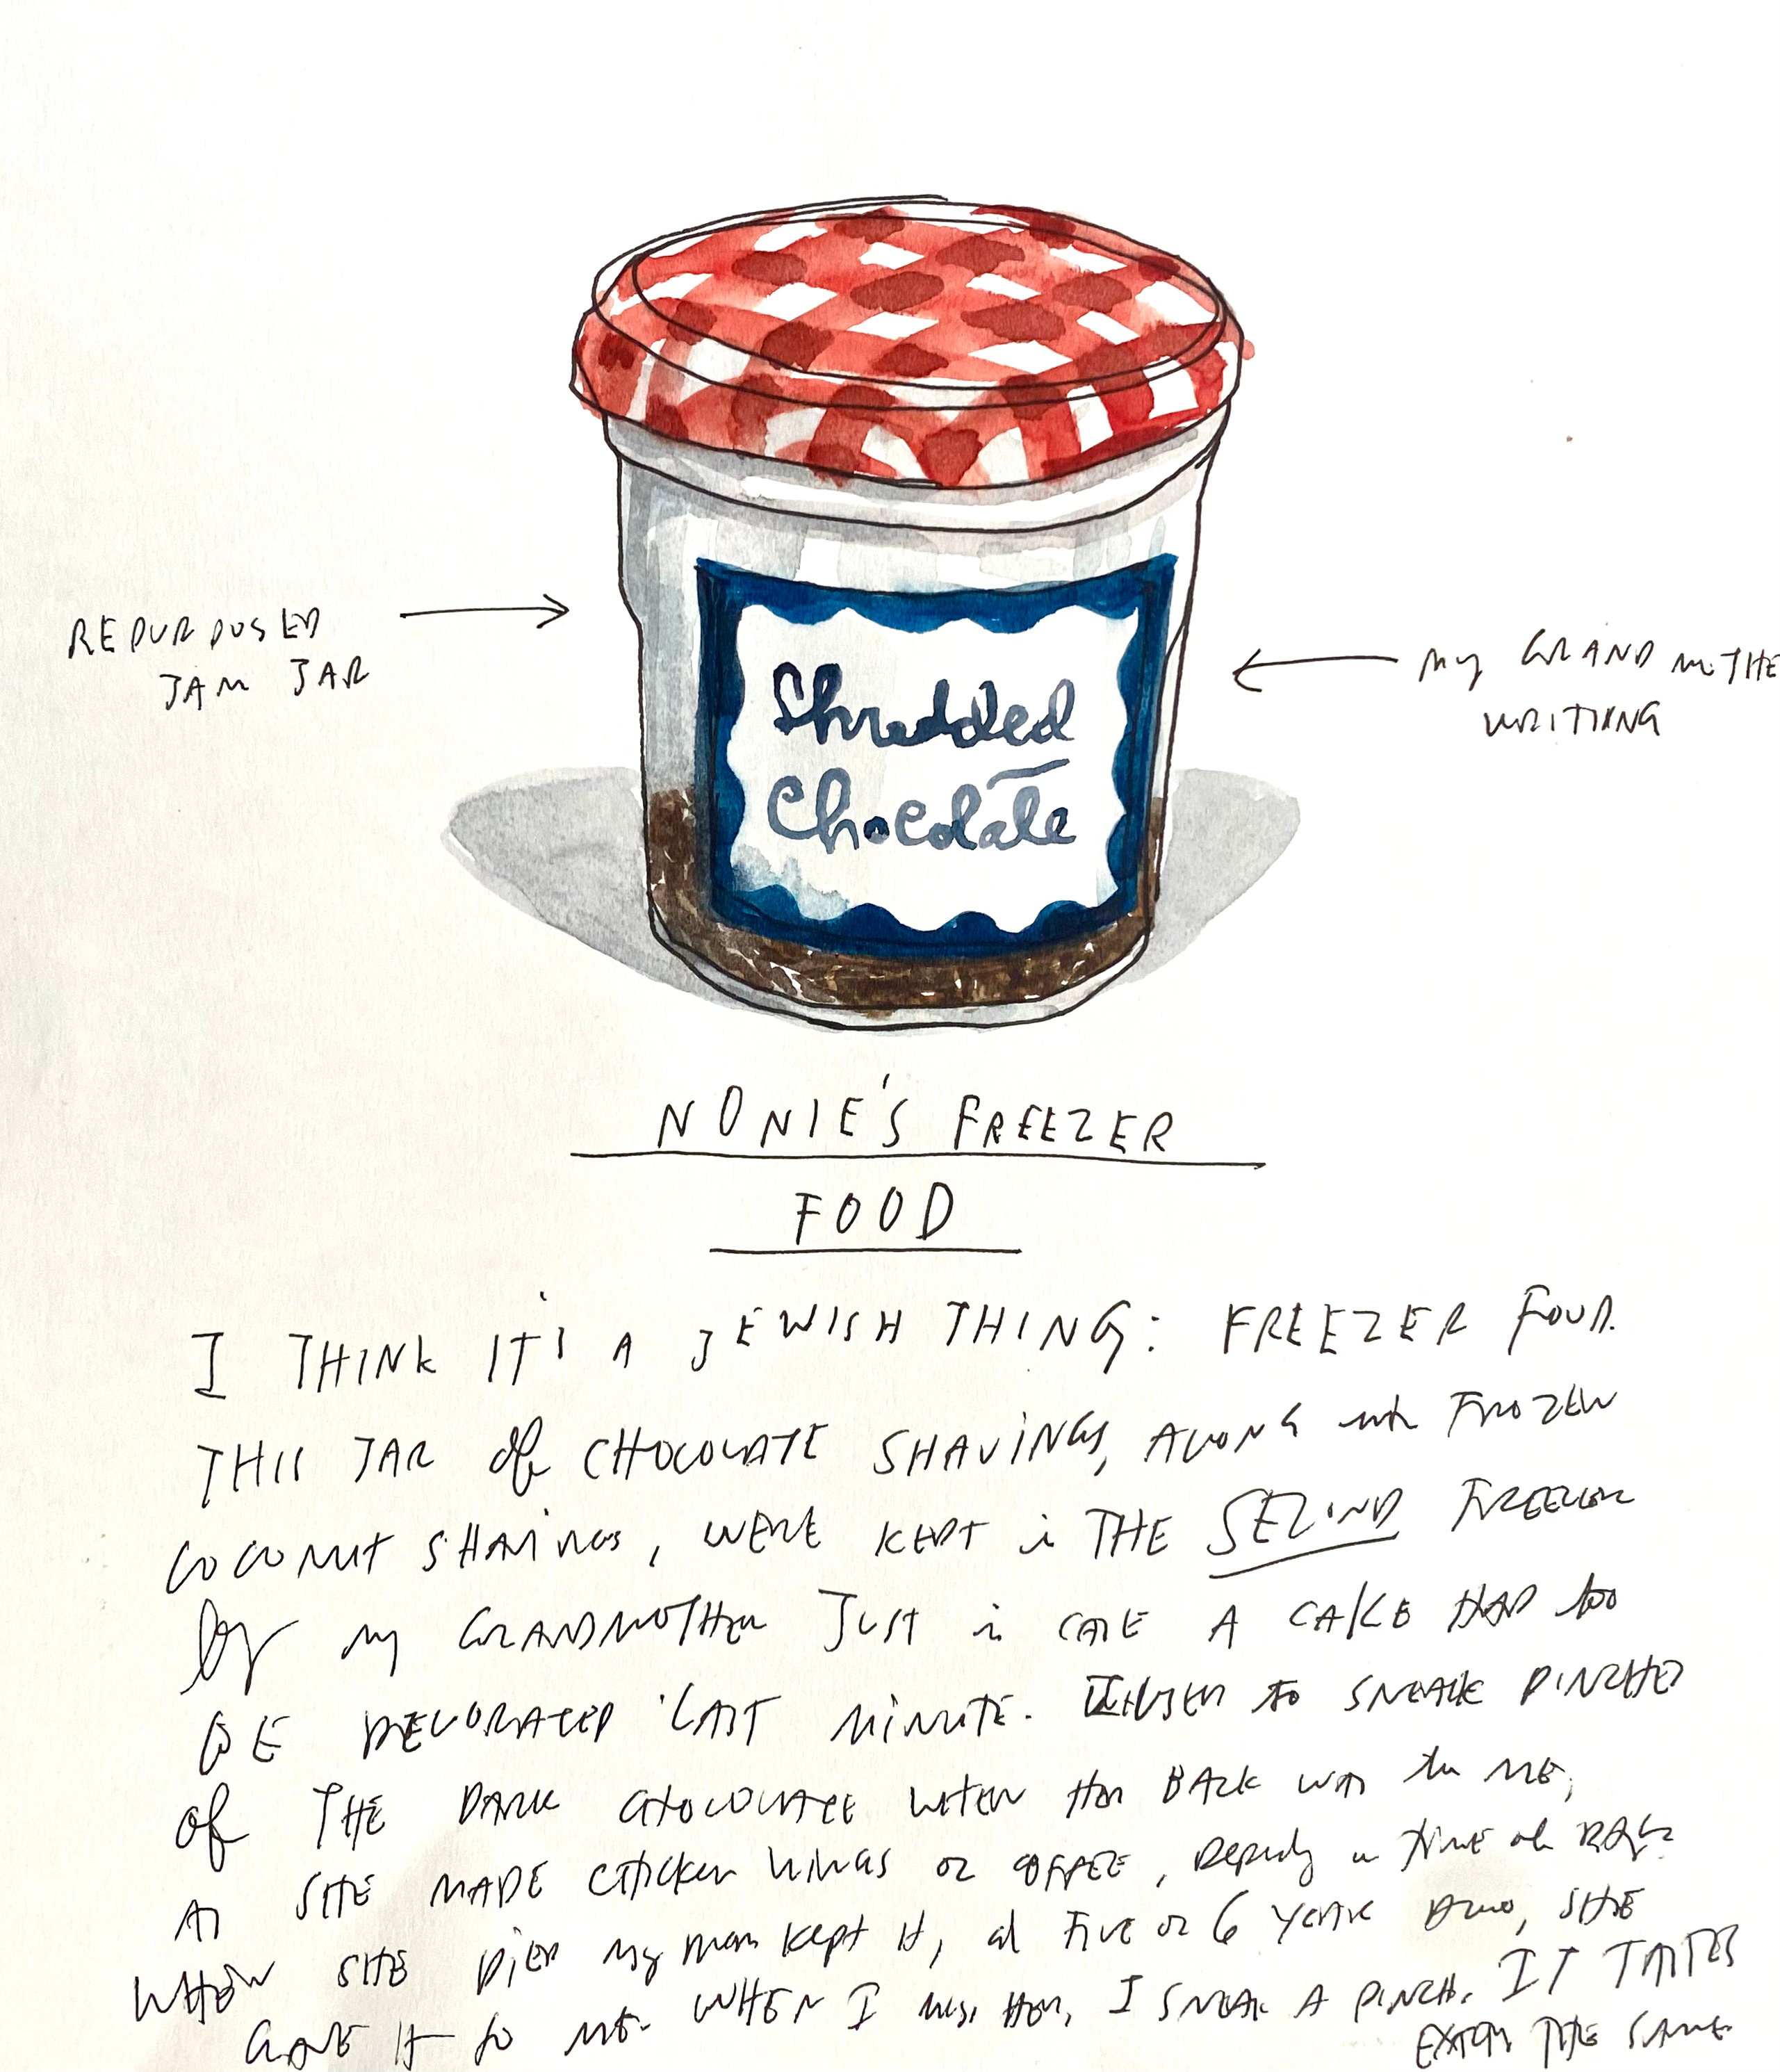 REPURPOSED
JAM JAR
MY GRANDMOTHE
WRITING
Shredded
Chocolate
NONIE'S FREEZER
FOOD
I THINK IT'S A JEWISH THING: FREEZER FOOD.
THIS JAR of CHOCOLATE SHAVINGS, ALONG with FROZEN
COCONUT SHAVINGS, WERE KEPT in THE SECOND FREEZER
by my GRANDMOTHER JUST in CASE A CAKE HAD to
BE DECORATED LAST MINUTE. I USED to SNEAK PINCHES
of THE DARK CHOCOLATE WHEN HER BACK WAS to ME,
AS SHE MADE CHICKEN WINGS OR COFFEE, DEPENDING on TIME of DAY.
WHEN SHE DIED my mom kept it, and FIVE OR 6 YEARS AGO, SHE
GAVE IT to ME. WHEN I miss HER, I SNEAK A PINCH. IT TASTES
EXACTLY THE SAME